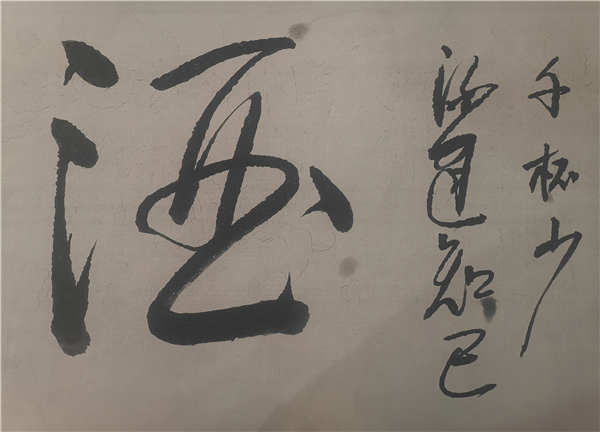 酒
酒逢知己
千杯少